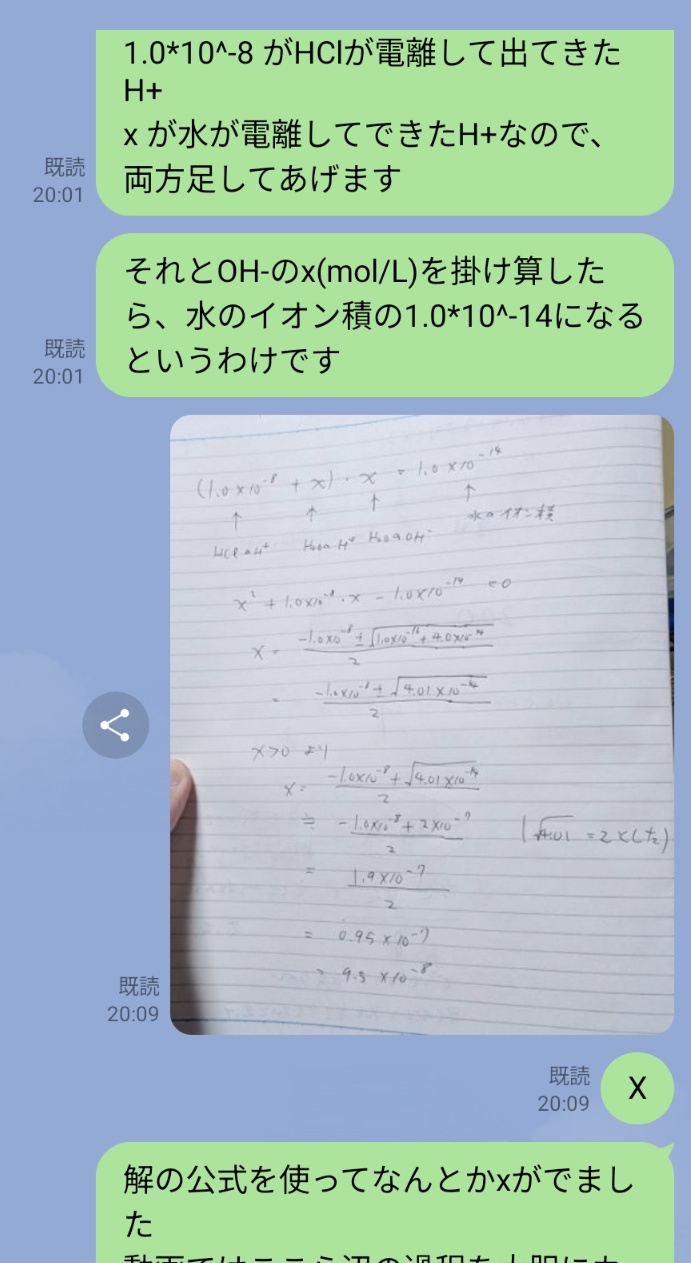 1.0*10^-8 がHClが電離して出てきた
H+
x が水が電離してできたH+なので、
両方足してあげます
既読
20:01
それとOH-のx(mol/L)を掛け算した
ら、水のイオン積の1.0*10^-14になる
というわけです
既読
20:01
(1.0×10⁻⁸ + x)・x = 1.0×10⁻¹⁴
↑ ↑ ↑ ↑
HClのH⁺ H₂OのH⁺ H₂OのOH⁻ 水のイオン積
x² + 1.0×10⁻⁸・x - 1.0×10⁻¹⁴ = 0
x = (-1.0×10⁻⁸ ± √(1.0×10⁻¹⁶ + 4.0×10⁻¹⁴)) / 2
= (-1.0×10⁻⁸ ± √(4.01×10⁻¹⁴)) / 2
x>0 より
x = (-1.0×10⁻⁸ + √(4.01×10⁻¹⁴)) / 2
≒ (-1.0×10⁻⁸ + 2×10⁻⁷) / 2
(√4.01 = 2とした)
= 1.9×10⁻⁷ / 2
= 0.95×10⁻⁷
= 9.5×10⁻⁸
既読
20:09
既読
20:09
X
解の公式を使ってなんとかxがでまし
た